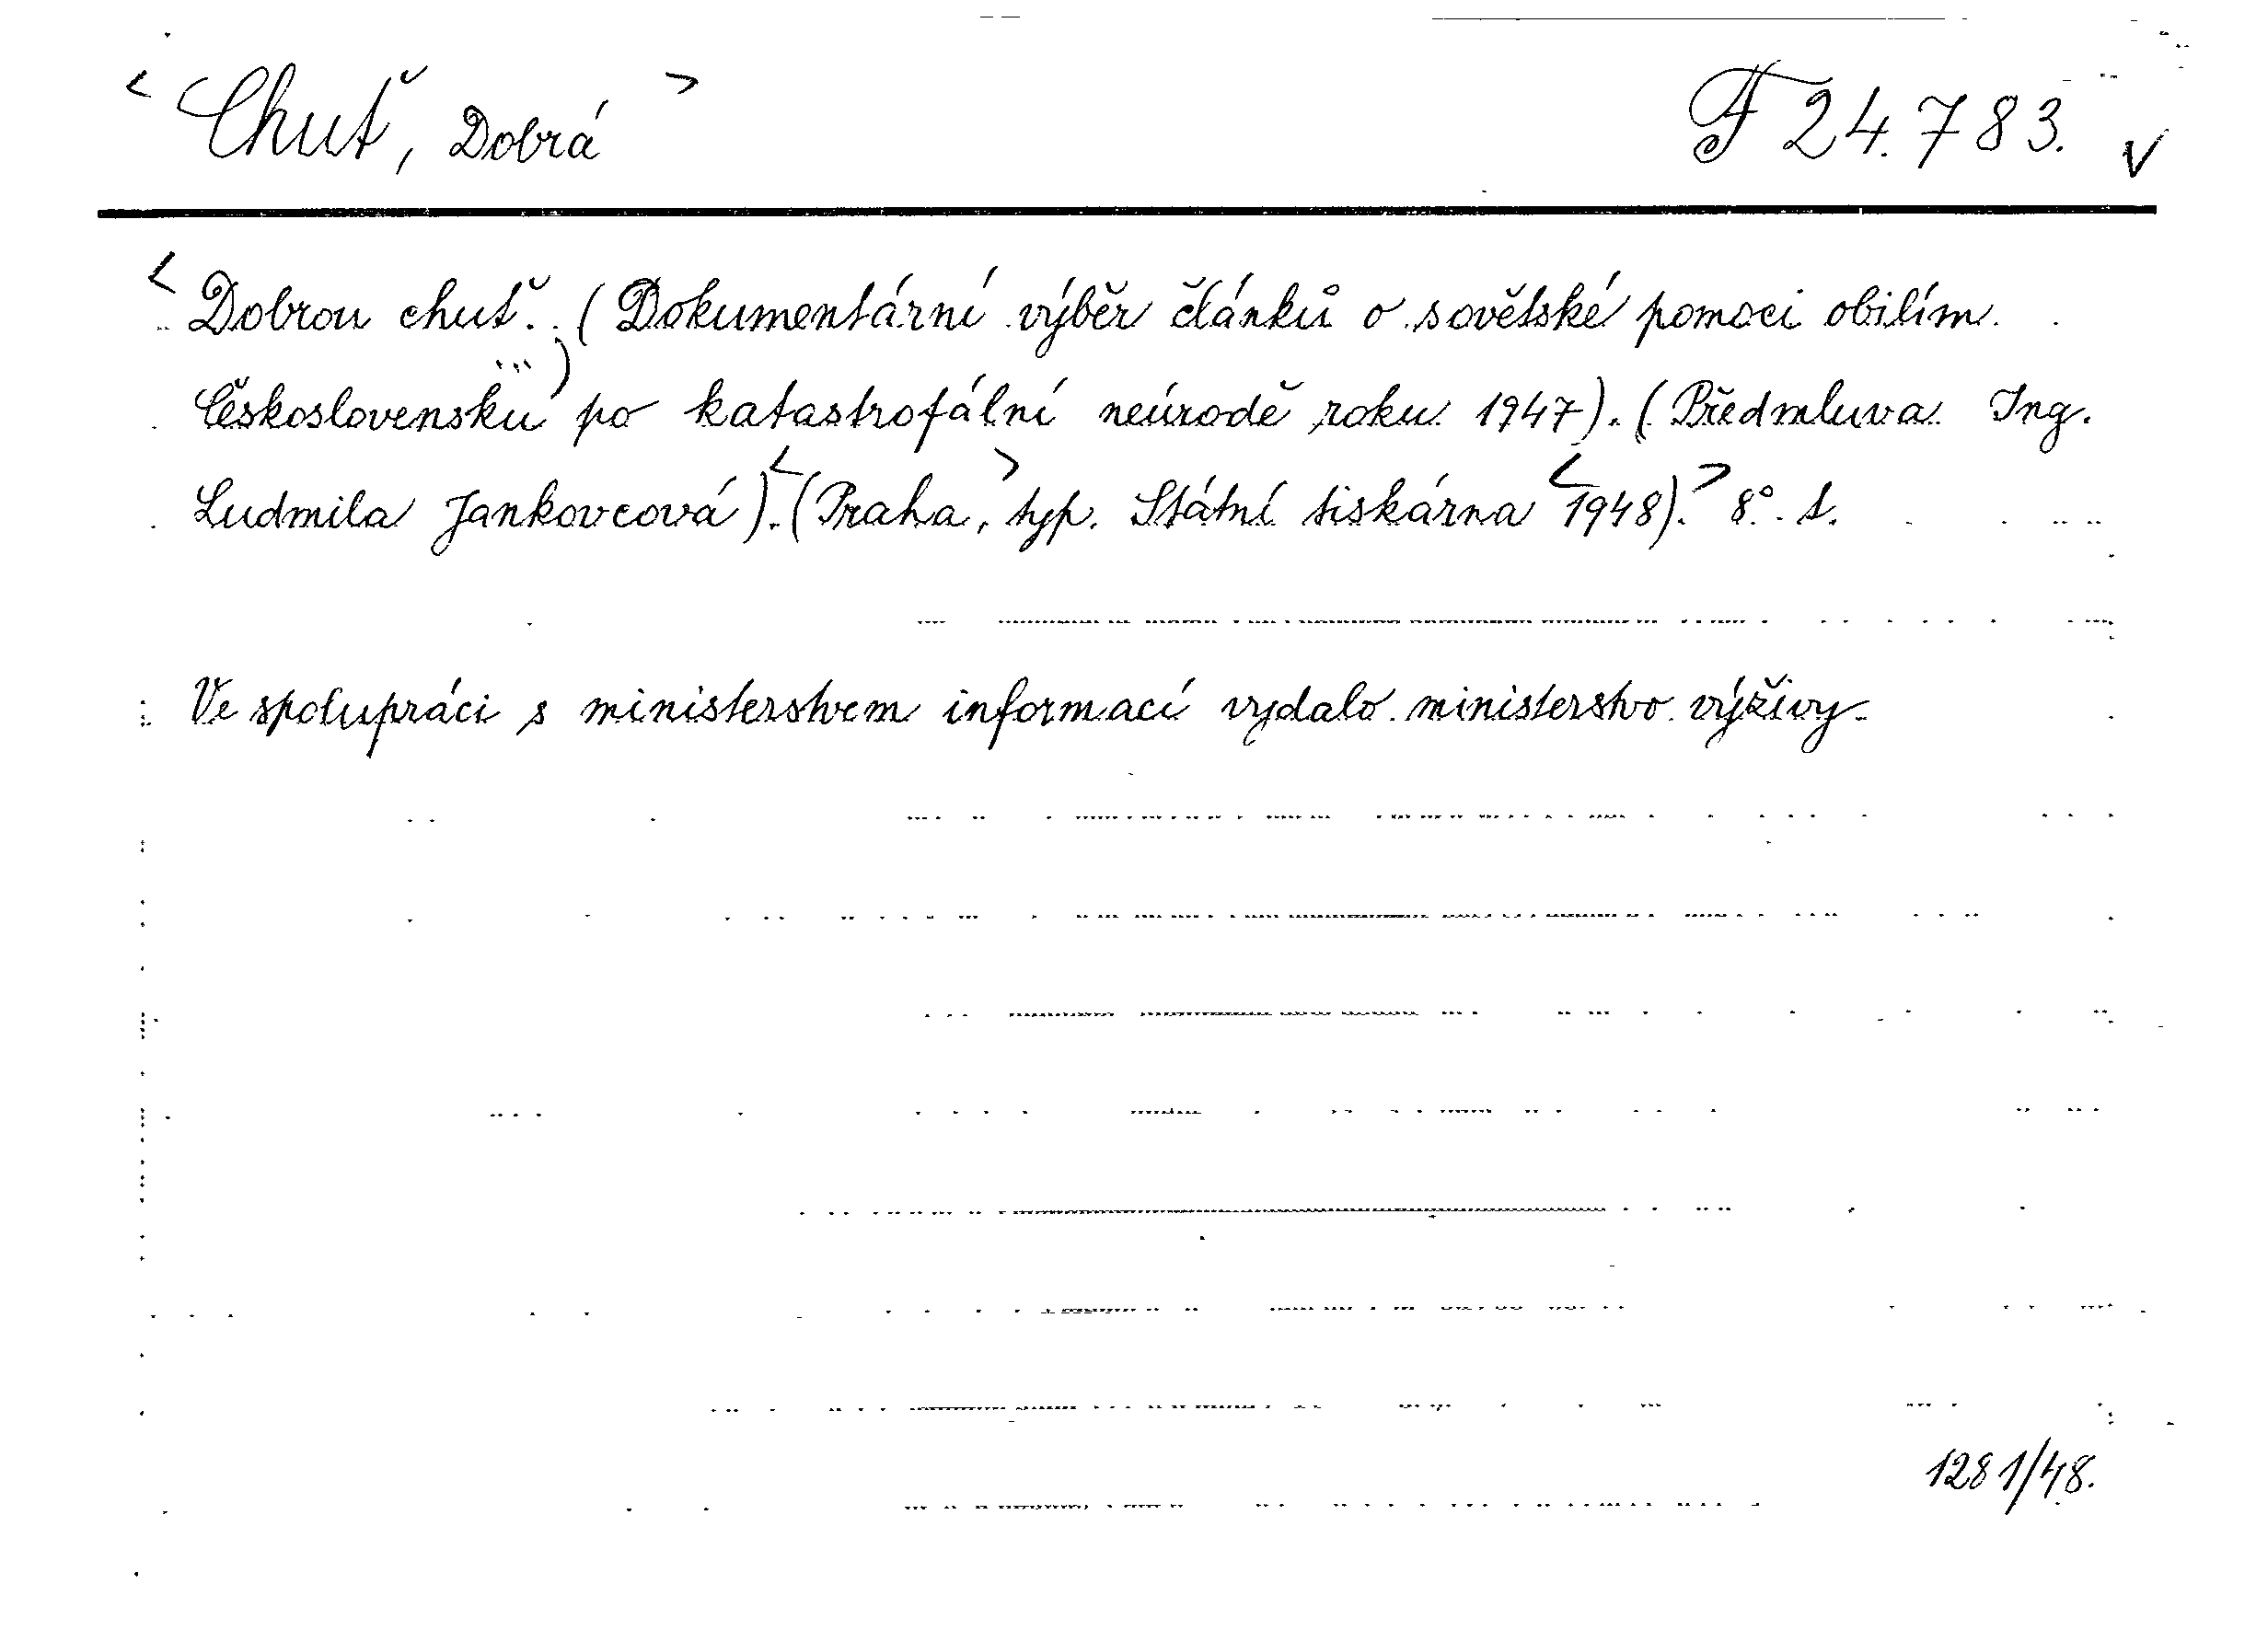 < Chuť, Dobrá > F 24.783. v
< Dobrou chuť. (Dokumentární výběr článků o sovětské pomoci obilím
Československu ...) po katastrofální neúrodě roku 1947). (Předmluva Ing.
Ludmila Jankovcová). < (Praha, > typ. Státní tiskárna < 1948). > 8°. s.
Ve spolupráci s ministerstvem informací vydalo ministerstvo výživy.
1281/48.